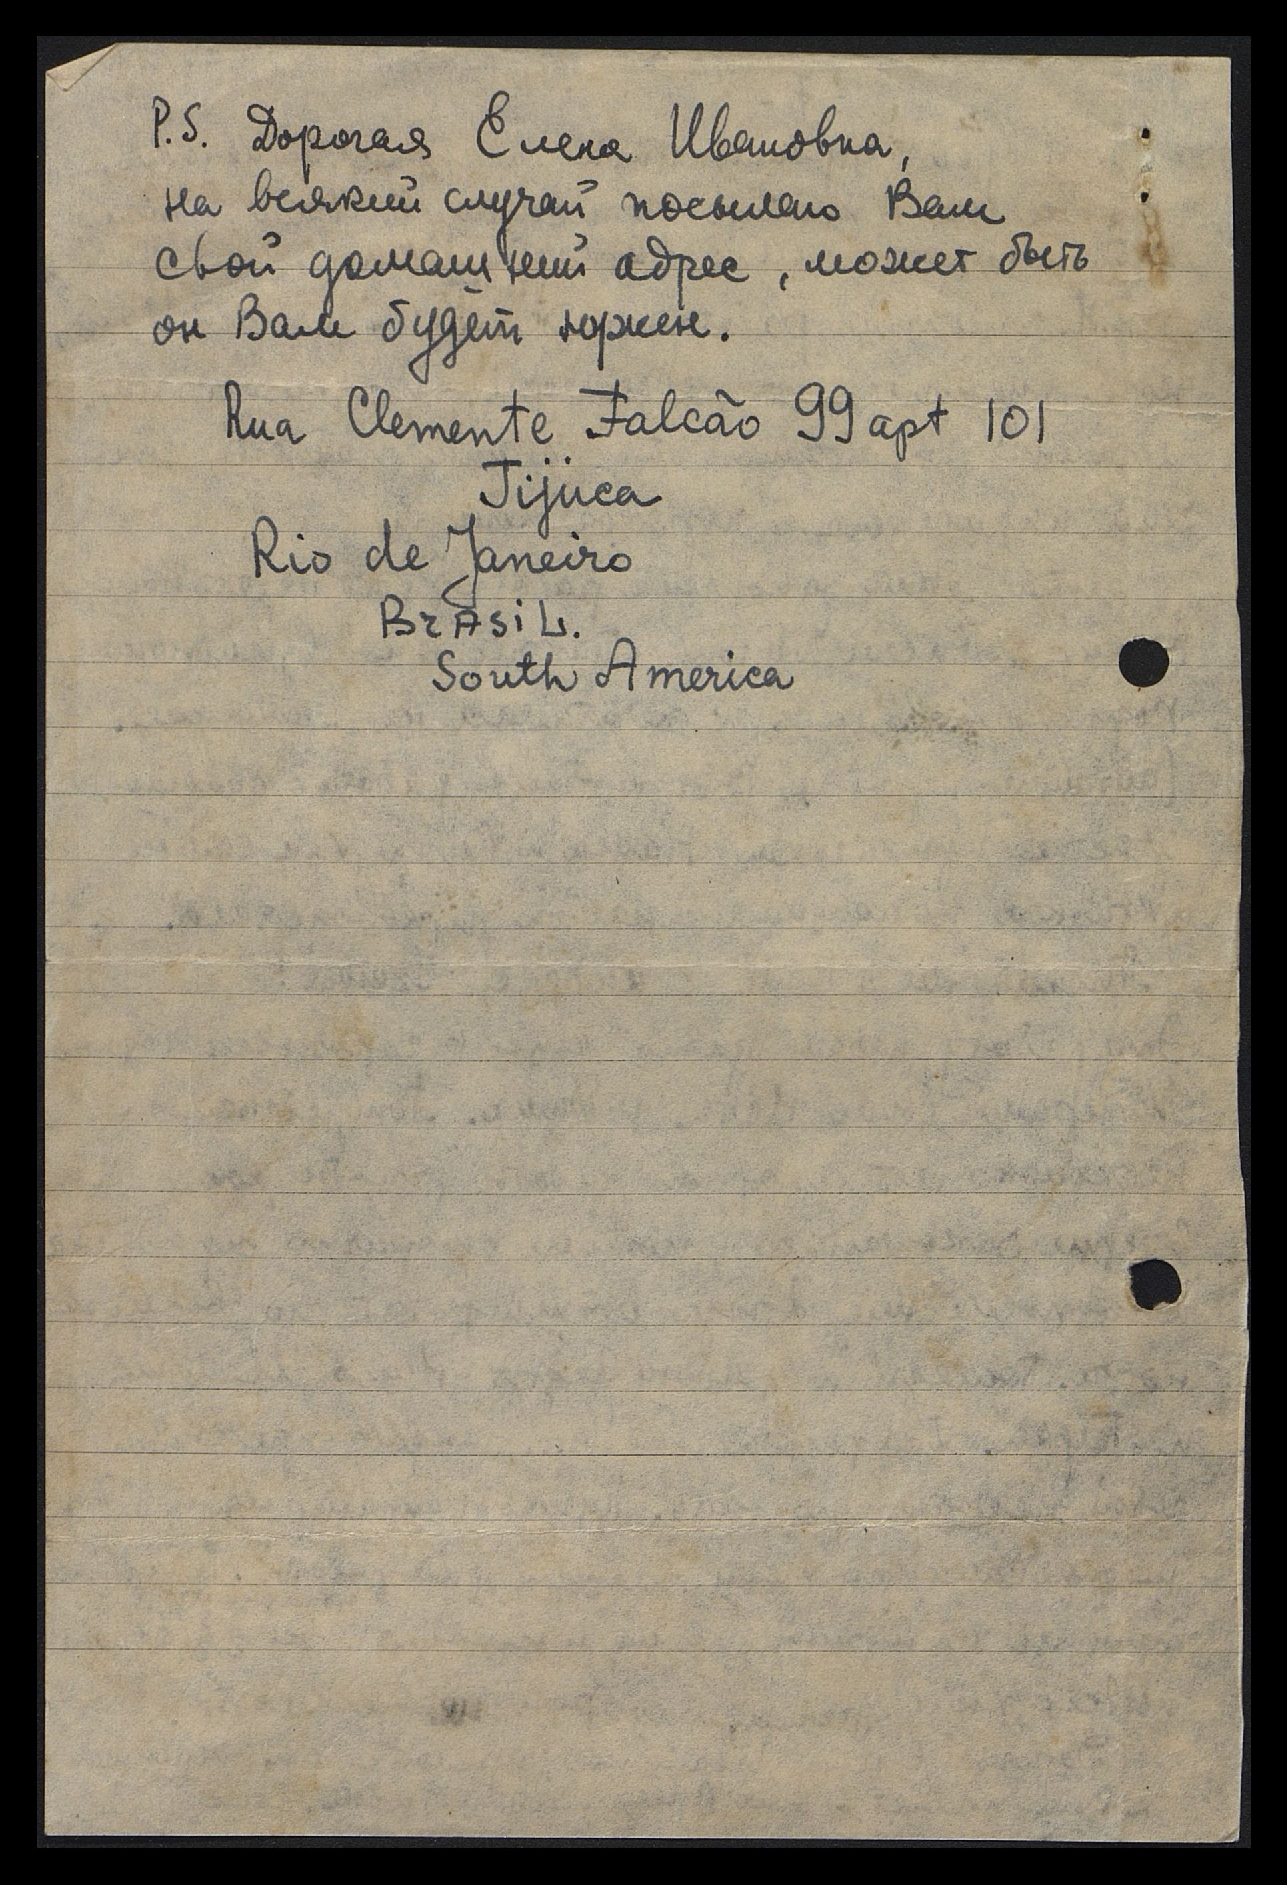 P.S. Дорогая Елена Ивановна,
на всякий случай посылаю Вам
свой домашний адрес, может быть
он Вам будет нужен.
Rua Clemente Falcão 99 apt 101
Tijuca
Rio de Janeiro
BrAsiL.
South America